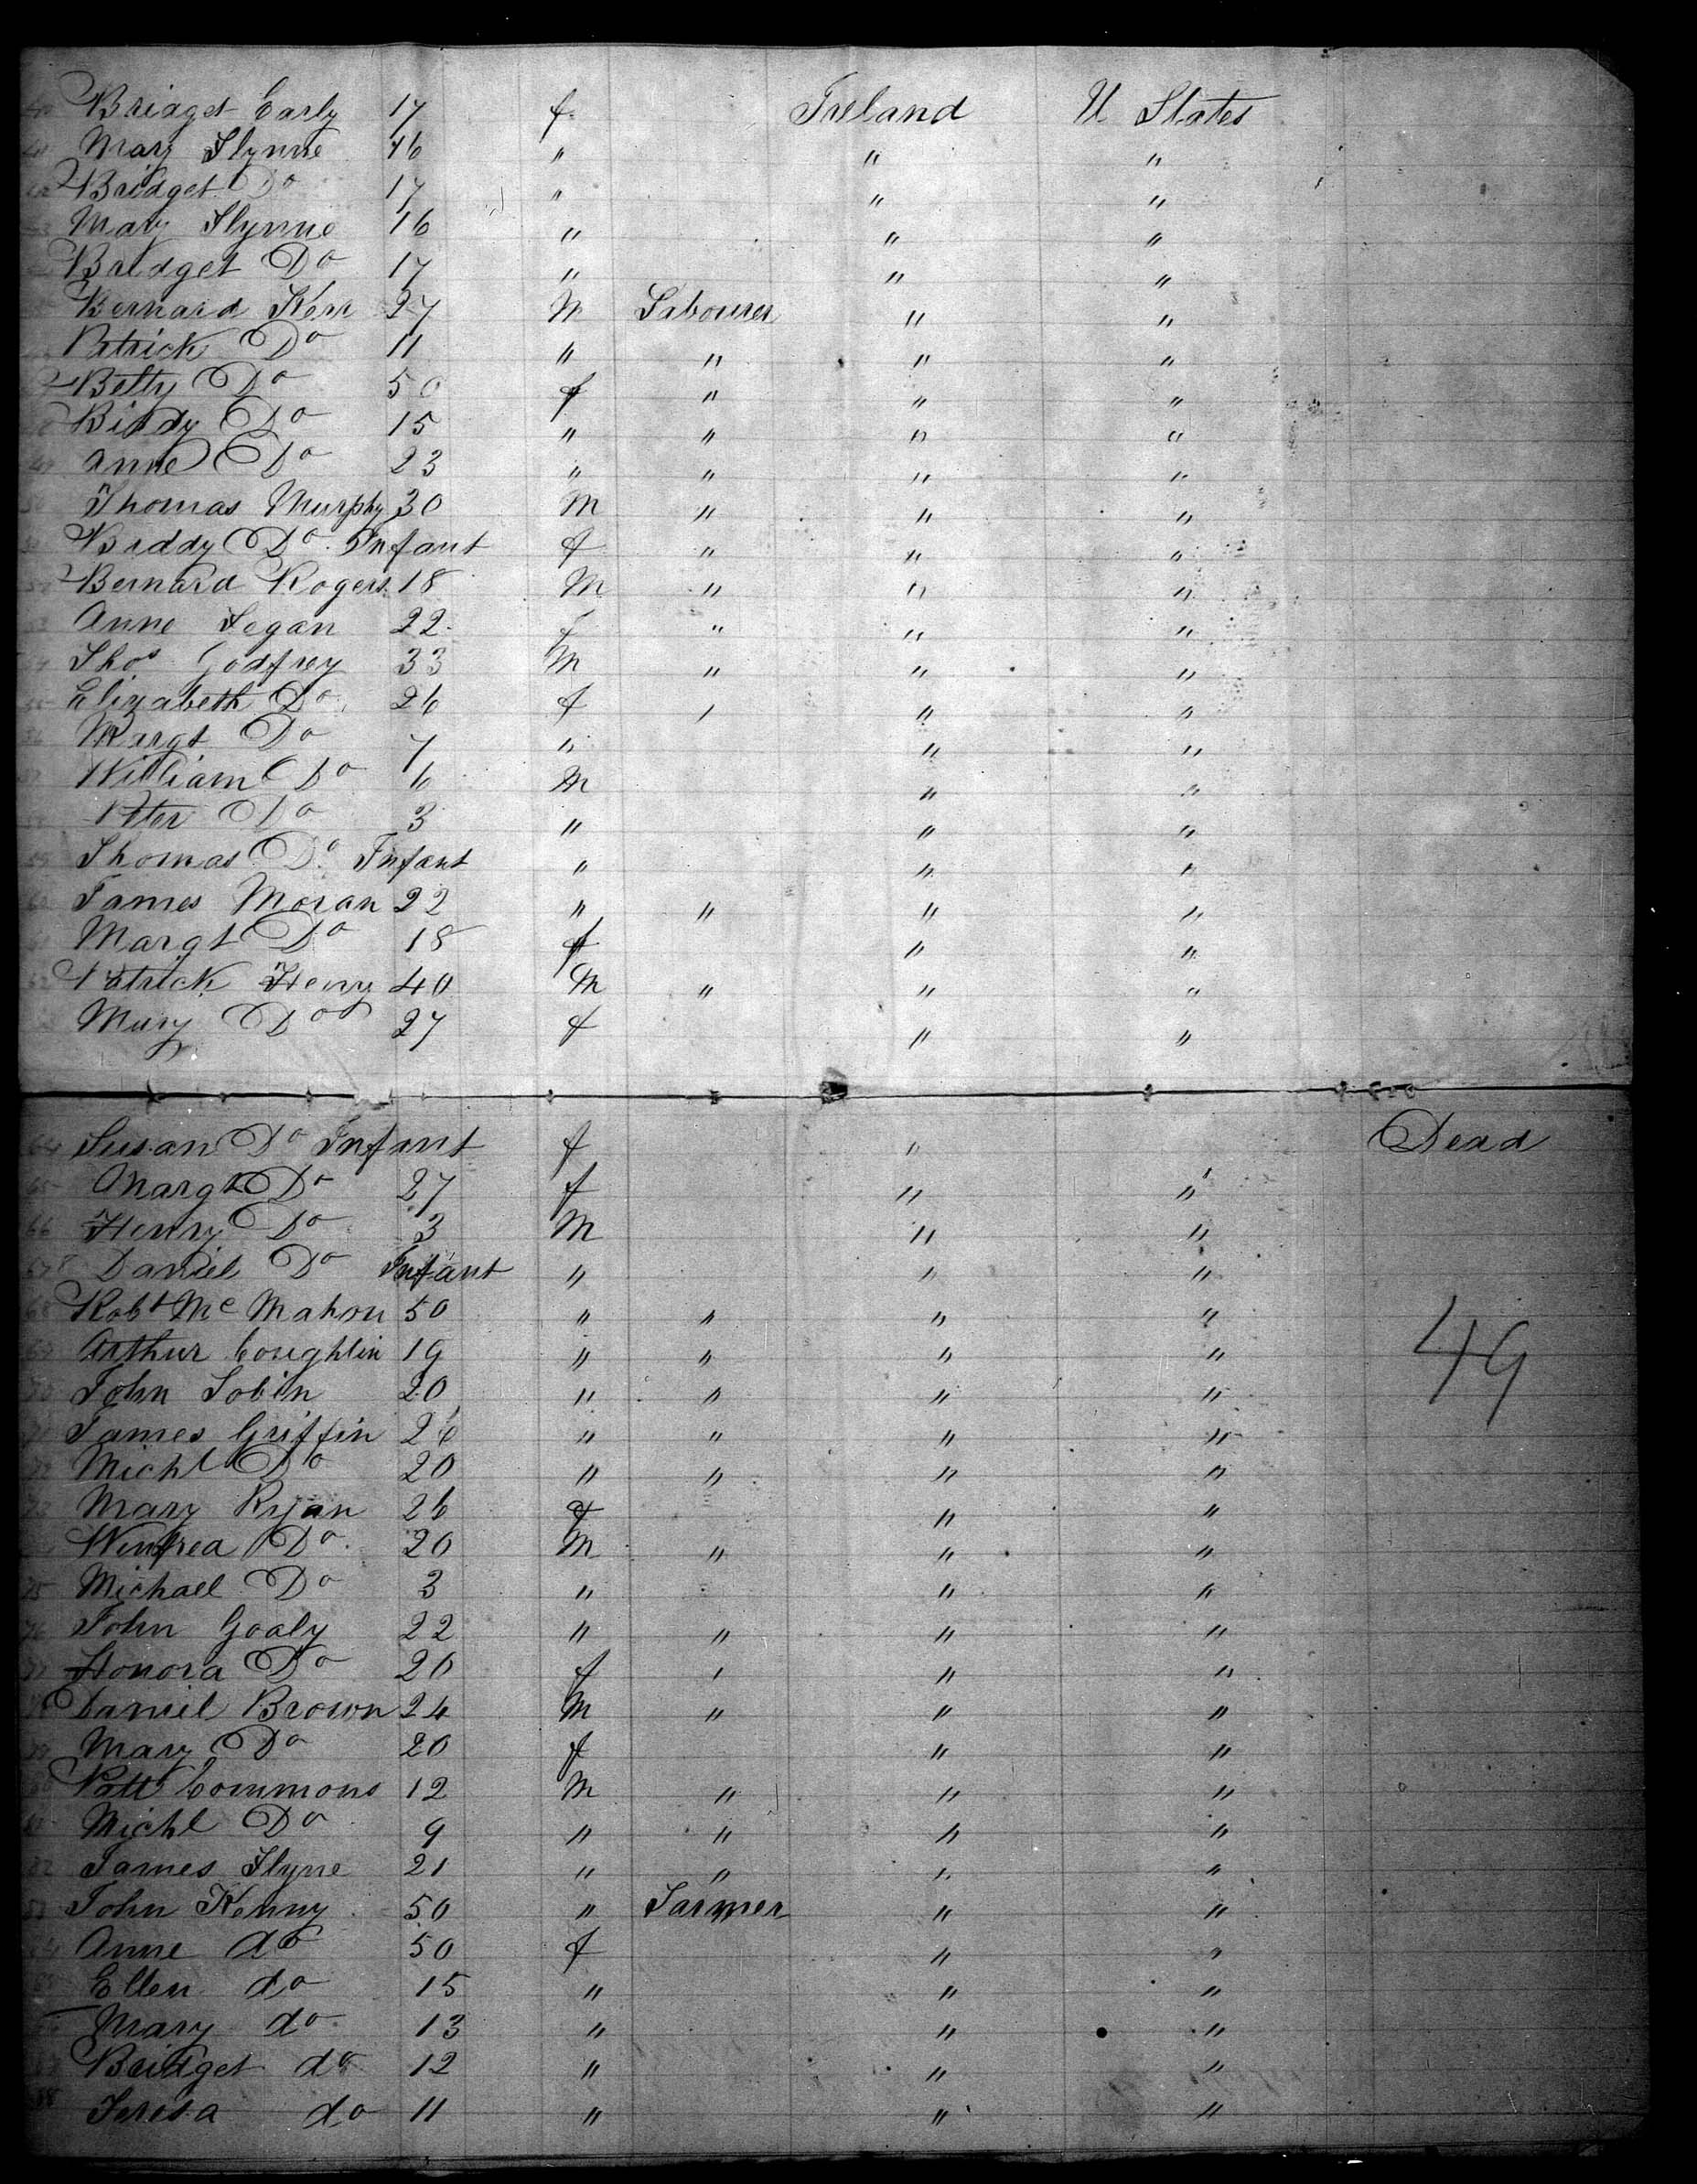 40 Bridget Early 17 f Ireland U States
41 Mary Flynne 46 " " "
42 Bridget Do 17 " " "
43 Mary Flynne 16 " " "
Bridget Do 17 " " "
Bernard Kerr 27 M Labourer " "
Patrick Do 11 " " " "
Betty Do 50 f " " "
Biddy Do 15 " " " "
49 Anne Do 23 " " " "
50 Thomas Murphy 30 M " " "
51 Biddy Do Infant f " " "
52 Bernard Rogers 18 M " " "
53 Anne Fegan 22 f " " "
54 Thos Godfrey 33 M " " "
55 Elizabeth Do 26 f " " "
56 Margt Do 7 " " "
57 William Do 6 M " "
Peter Do 3 " " "
59 Thomas Do Infant " " "
60 James Moran 22 " " " "
61 Margt Do 18 f " "
62 Patrick Henry 40 M " " "
Mary Do 27 f " "
64 Susan Do Infant f " Dead
65 Margt Do 27 f " "
66 Henry Do 3 M " "
67 Daniel Do Infant " " "
68 Robt Mc Mahon 50 " " " "
69 Arthur Coughlin 19 " " " " 49
70 John Tobin 20 " " " "
71 James Griffin 26 " " " "
72 Michl Do 20 " " " "
73 Mary Ryan 26 f " "
Winfrea Do 20 M " " "
75 Michael Do 3 " " "
76 John Goaly 22 " " " "
77 Honora Do 20 f " " "
78 Daniel Brown 24 M " " "
79 Mary Do 20 f " "
80 Patt Commons 12 M " " "
81 Michl Do 9 " " " "
82 James Flyne 21 " " " "
83 John Kenny 50 " Farmer " "
84 Anne do 50 f " "
85 Ellen do 15 " " "
86 Mary do 13 " " "
87 Bridget do 12 " " "
88 Teresa do 11 " " "